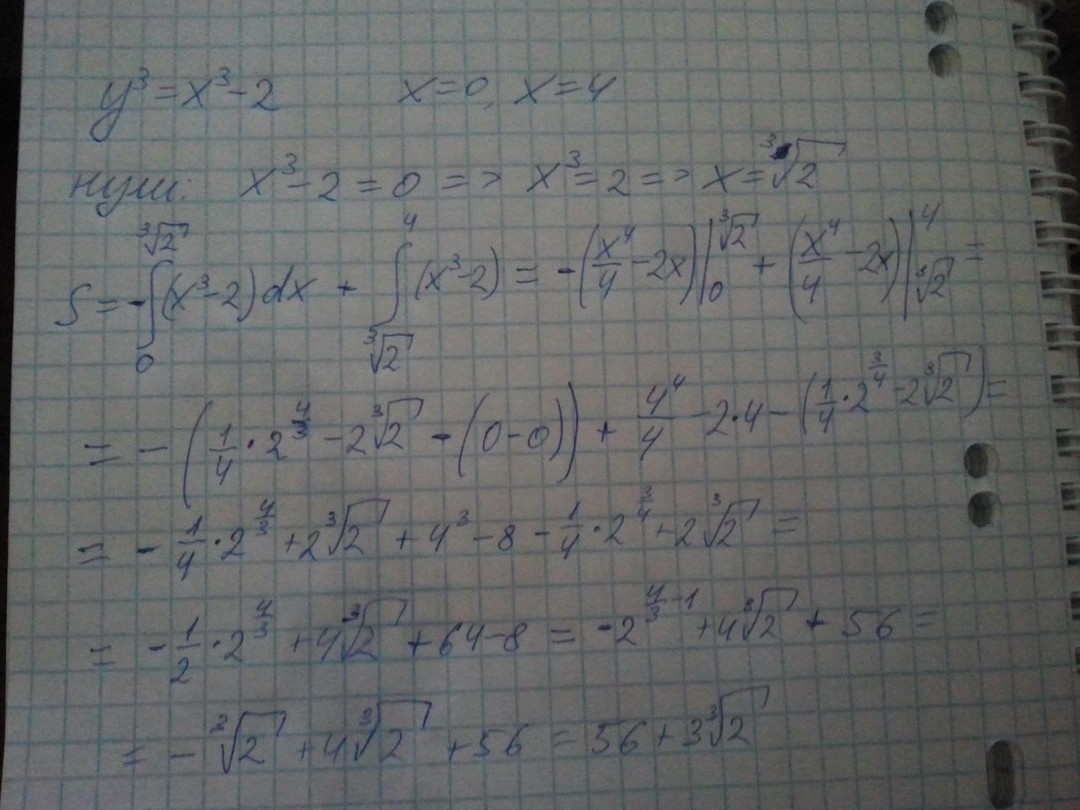 y³=x³-2 x=0, x=4
нули: x³-2=0 => x³=2 => x=∛2
S = -∫₀^∛2 (x³-2)dx + ∫_∛2^4 (x³-2) = -(x⁴/4 -2x)|₀^∛2 + (x⁴/4 -2x)|_∛2^4 =
= -(1/4·2^(4/3) -2∛2 -(0-0)) + 4⁴/4 -2·4-(1/4·2^(3/4) -2∛2) =
= -1/4·2^(4/3) +2∛2 +4³-8-1/4·2^(3/4) +2∛2 =
= -1/2·2^(4/3) +4∛2 +64-8 = -2^(4/3-1) +4∛2 + 56 =
= -∛2 +4∛2 +56 = 56+3∛2